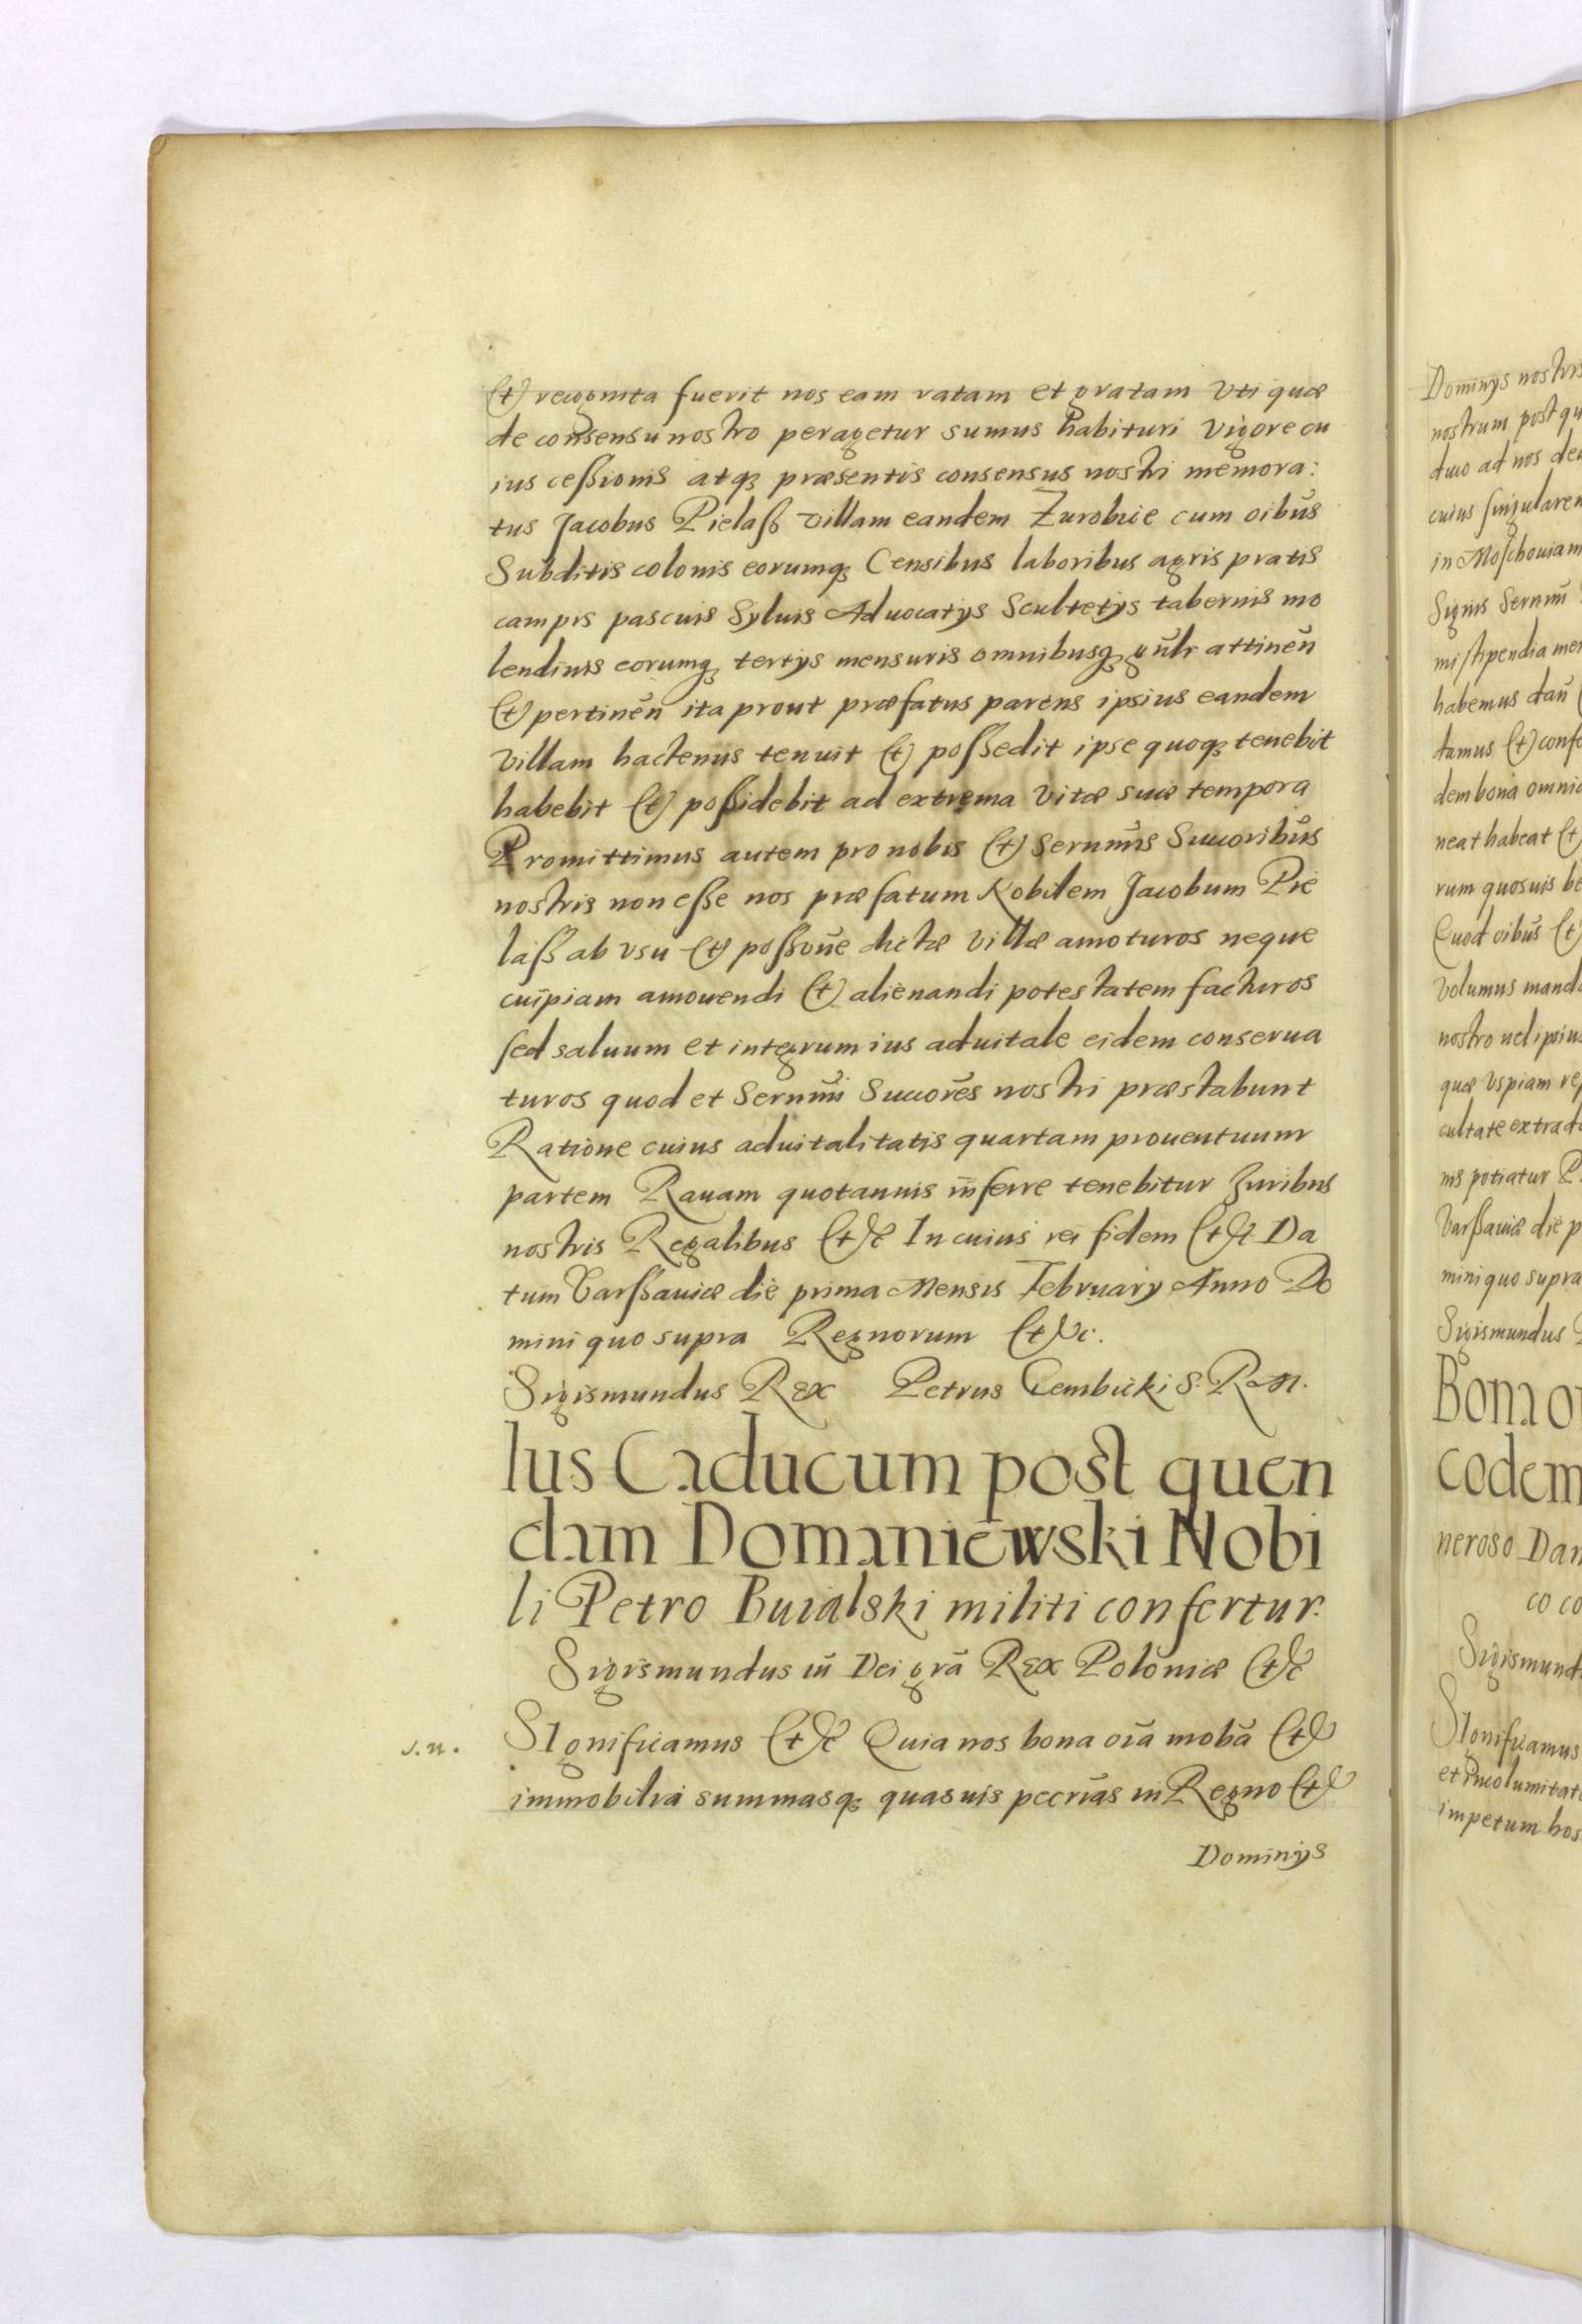 (et) recognita fuerit nos eam ratam et gratam Vti quæ
de consensu nostro peragetur sumus habituri Vigore cu
ius ceßionis atq; præsentis consensus nostri memora:
tus Jacobus Pielaß villam eandem Zurobice cum oibūs
Subditis colonis eorumq; Censibus laboribus agris pratis
campis pascuis Syluis Aduocatijs Scultetijs tabernis mo
lendinis eorumq; tertijs mensuris omnibusq; gūlr attineñ
(et) pertineñ ita prout præfatus parens ipsius eandem
Villam hactenus tenuit (et) poßedit ipse quoq; tenebit
habebit (et) poßidebit ad extrema Vitæ suæ tempora
Promittimus autem pro nobis (et) Sernm̄is Succoribūs
nostris non eße nos præfatum Nobilem Jacobum Pie
laß ab vsu (et) poßoūe dictæ Villæ amoturos neque
cuipiam amouendi (et) alienandi potestatem facturos
sed saluum et integrum ius aduitale eidem conserua
turos quod et Sernm̄i Succorēs nostri præstabunt
Ratione cuius aduitalitatis quartam prouentuum
partem Rauam quotannis inferre tenebitur Juribus
nostris Regalibus (et)c In cuius rei fidem (et)c Da
tum Varßauiæ die prima Mensis February Anno Do
mini quo supra Regnorum (et)c.
Sigismundus Rex Petrus Gembicki S. R. M.
Ius Caducum post quen
dam Domaniewski Nobi
li Petro Buialski militi confertur.
Sigismundus iii Dei grā Rex Poloniæ (et)c
Significamus (et)c Quia nos bona oīa mobā (et)
immobilia summasq; quasuis pecrīas in Regno (et)
Dominijs
Dominys nostris
nostrum post qu
duo ad nos de
cuius singularem
in Moschouiam
Signis Sernm̄i
mi stipendia mer
habemus dañ (
tamus (et) confe
dem bona omnia
neat habeat (et)
rum quosuis be
Quod oibūs (et)
Volumus manda
nostro uel ipsius
quæ Vspiam re
cultate extrad
nis potiatur P
Varßauiæ die p
mini quo supra
Sigismundus R
Bona o
codem
neroso Dan
co co
Sigismund
Significamus
et incolumitate
impetum hos